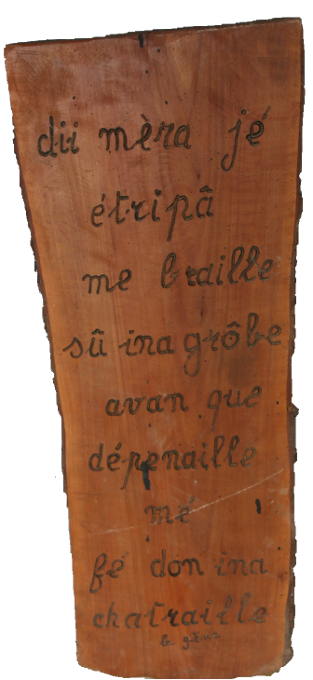 dii mèra jé
étripâ
me braille
sû ina grôbe
avan que
dépenaille
mé
fé don ina
chatraille
le